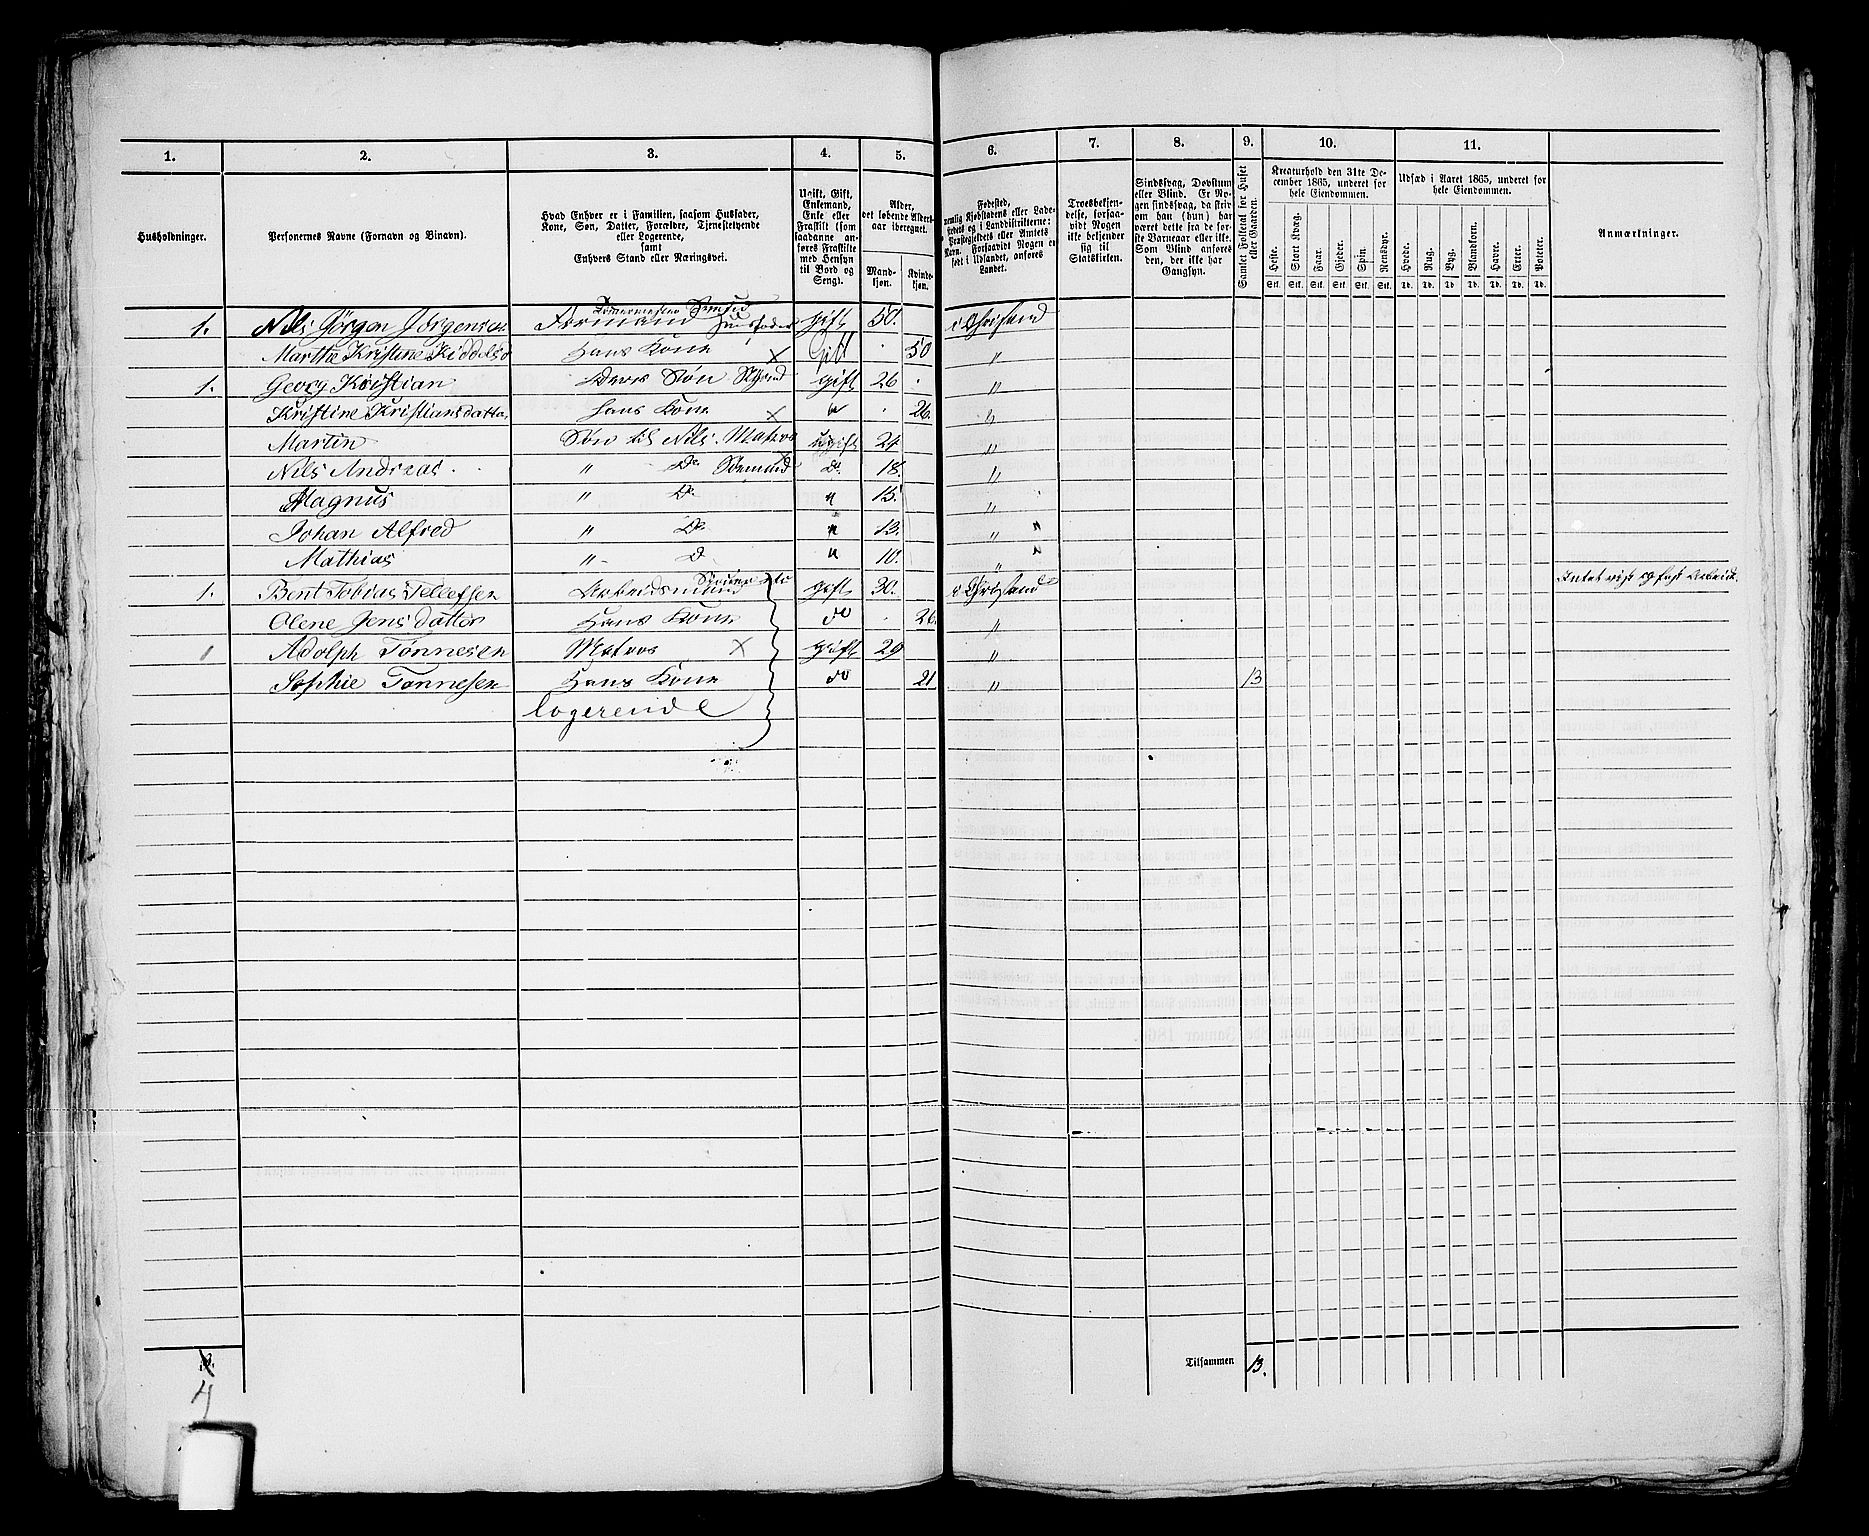 1. 2. 3. 4. 5. 6. 7. 8. 9. 10. 11.
Husholdninger.
Personernes Navne (Fornavn og Binavn).
Hvad Enhver er i Familien, saasom Husfader,
Kone, Søn, Datter, Forældre, Tjenestetyende
eller Logerende,
samt
Enhvers Stand eller Næringsvei.
Ugift, Gift,
Enkemand,
Enke eller
Fraskilt (som
saadanne anføres
Fraskilte
med Hensyn
til Bord og
Seng).
Alder,
det løbende Aldersaar
iberegnet.
Mandkjøn.
Kvindekjøn.
Fødested,
nemlig Kjøbstadens eller Ladestedets
og i Landdistrikterne:
Præstegjeldets eller Amtets
Navn. Forsaavidt Nogen er
født i Udlandet, anføres
Landet.
Troesbekjendelse,
forsaavidt
Nogen
ikke bekjender
sig til
Statskirken.
Sindssvag, Døvstum
eller Blind. Er Nogen
sindssvag, da skriv
om han (hun) har
været dette fra de første
Barneaar eller ikke.
Som Blind anføres
den, der ikke har
Gangsyn.
Samlet Folketal for Huset
eller Gaarden.
Kreaturhold den 31te December
1865, underet for
hele Eiendommen.
Heste. Stort Kvæg. Faar. Gjeder. Svin. Rensdyr.
Stk. Stk. Stk. Stk. Stk. Stk.
Udsæd i Aaret 1865, underet for
hele Eiendommen.
Hvede. Rug. Byg. Blandkorn. Havre. Erter. Poteter.
Td. Td. Td. Td. Td. Td. Td.
Anmærkninger.
1. Nils Jørgen Jørgensen Formand Husfader gift 50. i Christsand
Marthe Kristine Kiddelsd Hans Kone Gift 50 "
1. Georg Kristian Deres Søn gift 26 "
Kristine Kristiansdatter hans Kone " 26. "
Martin Søn til Nils. Matros ugift 24 "
Nils Andreas " Do Sømand do 18. "
Magnus " Do " 15. "
Johan Alfred " Do " 13. "
Mathias " D " 10. "
1. Bent Tobias Tellefsen Arbeidsmand gift 30. i Christsand Intet vist og fast Arbeide.
Olene Jensdatter Hans Kone do 26. "
1 Adolph Tønnesen Matros gift 29 "
Sophie Tønnesen Hans Kone do 21 " 13
Logerende
Tilsammen 13.
4